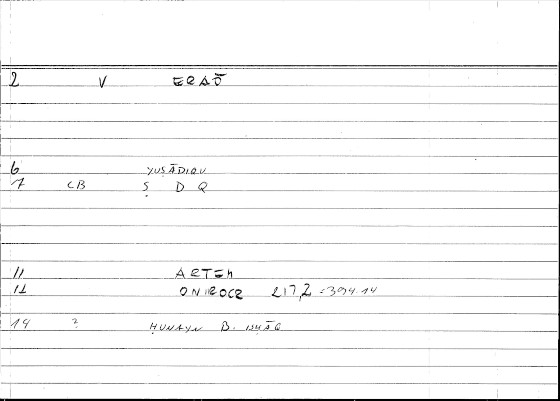 2 V ERAŌ
6 YUṢĀDIQU
7 CB Ṣ D Q
11 ARTEM
12 ONIROCR 217,2 = 394.14
19 ? ḤUNAYN B. ISḤĀQ